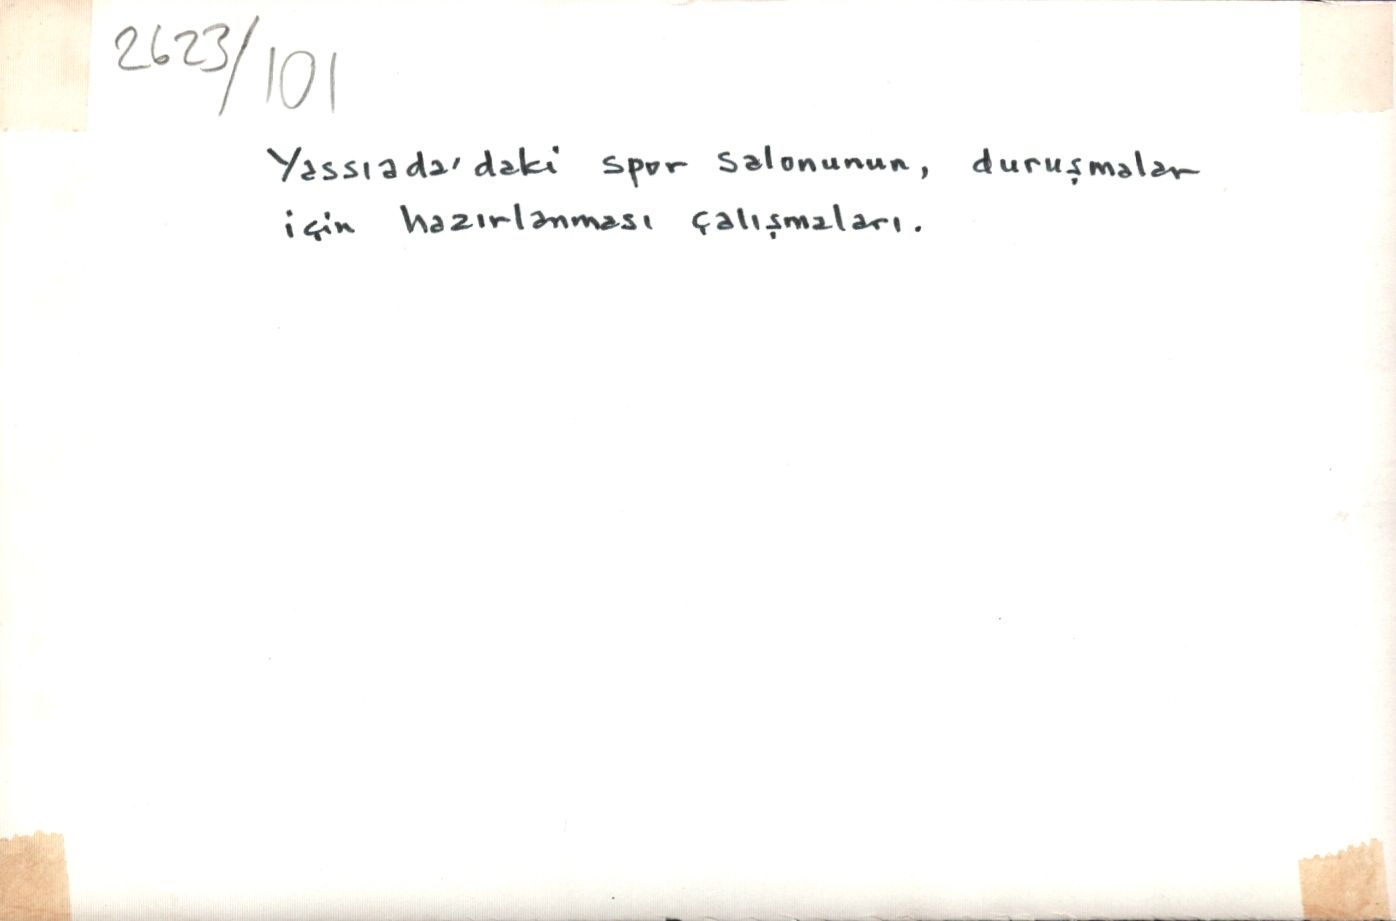 2623/101
Yassıada'daki spor salonunun, duruşmalar
için hazırlanması çalışmaları.